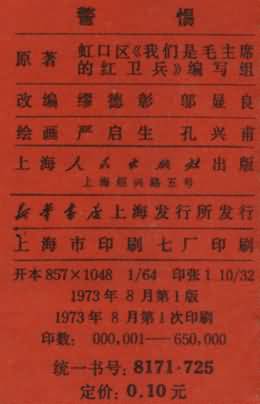 警 惕
原著 虹口区《我们是毛主席
的红卫兵》编写组
改编 缪德彰 邬显良
绘画 严启生 孔兴甫
上海人民出版社出版
上海绍兴路五号
新华书店上海发行所发行
上海市印刷七厂印刷
开本857×1048 1/64 印张1 10/32
1973年8月第1版
1973年8月第1次印刷
印数：000,001——650,000
统一书号：8171·725
定价：0.10元